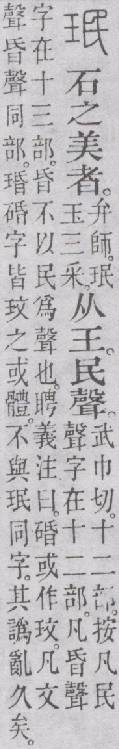 珉石之美者。弁師。珉
玉三采。从王。民聲。武巾切。十二部。按凡民
聲字在十二部。凡昏聲
字在十三部。昏不以民爲聲也。聘義注曰。碈或作玟。凡文
聲昏聲同部。瑉碈字皆玟之或體。不與珉同字。其譌亂久矣。